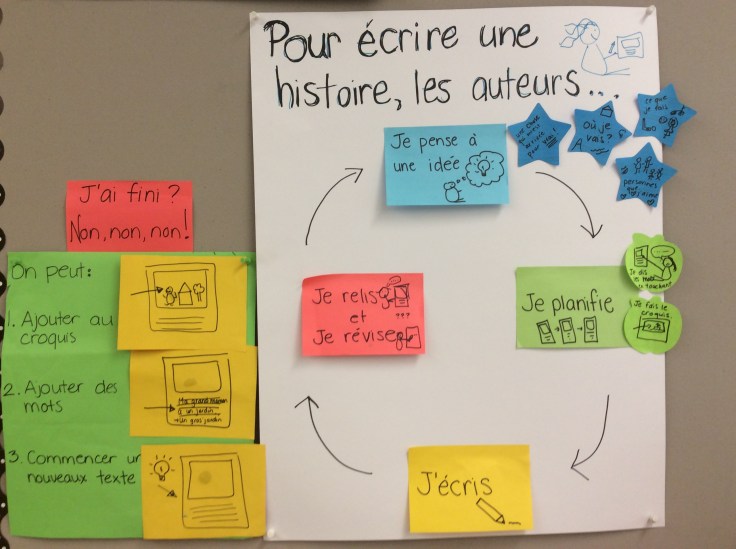 Pour écrire une
histoire, les auteurs...
Je pense à
une idée
où je
vais?
ce que
je fais
personnes
que
j'aime
Je planifie
Je dis
les mots
Je fais le
croquis
J'écris
Je relis
et
Je révise
???
J'ai fini?
Non, non, non!
On peut:
1. Ajouter au
croquis
2. Ajouter des
mots
Ma grand
à un jardin
un gros jardin
3. Commencer un
nouveaux texte